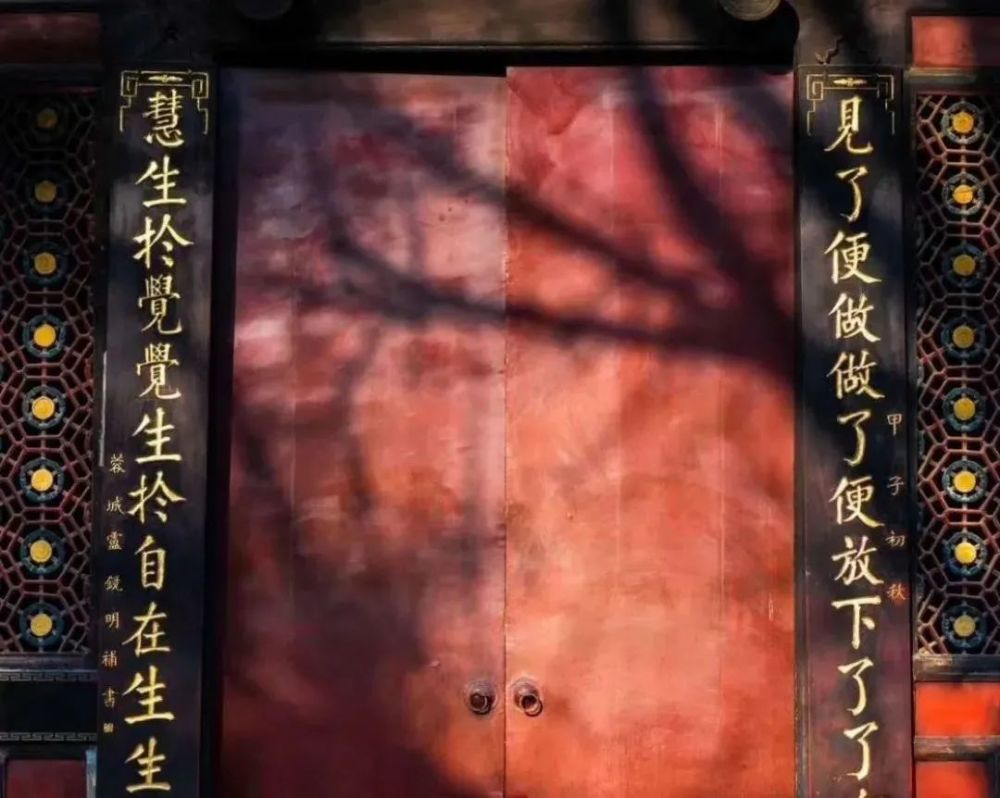 見了便做做了便放下了了
甲子初秋
慧生扵覺覺生扵自在生生
蓉城靈鏡明補書